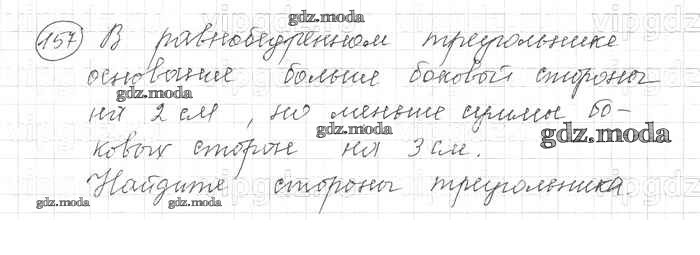 157 В равнобедренном треугольнике
основание больше боковой стороны
на 2 см, но меньше суммы бо-
ковых сторон на 3 см.
Найдите стороны треугольника
gdz.moda
gdz.moda
gdz.moda
gdz.moda
gdz.moda
gdz.moda